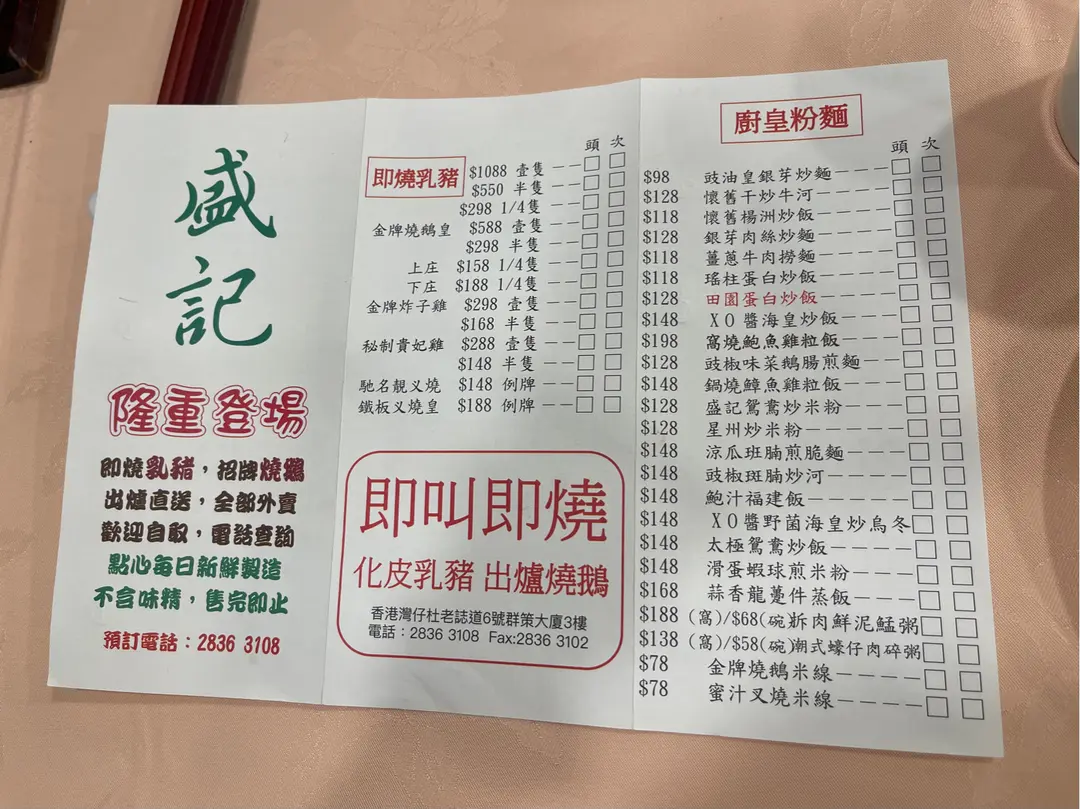 盛記
隆重登場
即燒乳豬，招牌燒鵝
出爐直送，全部外賣
歡迎自取，電話查詢
點心每日新鮮製造
不含味精，售完即止
預訂電話：2836 3108
頭 次
即燒乳豬 $1088 壹隻 －－□ □
$550 半隻 －－□ □
$298 1/4隻 －－□ □
金牌燒鵝皇 $588 壹隻 －－□ □
$298 半隻 －－□ □
上庄 $158 1/4隻 －－□ □
下庄 $188 1/4隻 －－□ □
金牌炸子雞 $298 壹隻 －－□ □
$168 半隻 －－□ □
秘制貴妃雞 $288 壹隻 －－□ □
$148 半隻 －－□ □
馳名靚义燒 $148 例牌 －－□ □
鐵板义燒皇 $188 例牌 －－□ □
即叫即燒
化皮乳豬 出爐燒鵝
香港灣仔杜老誌道6號群策大廈3樓
電話：2836 3108 Fax:2836 3102
廚皇粉麵
頭 次
$98 豉油皇銀芽炒麵－－－－□ □
$128 懷舊干炒牛河－－－－□ □
$118 懷舊楊洲炒飯－－－－□ □
$128 銀芽肉絲炒麵－－－－□ □
$118 薑蔥牛肉撈麵－－－－□ □
$118 瑤柱蛋白炒飯－－－－□ □
$128 田園蛋白炒飯－－－－□ □
$148 XO醬海皇炒飯－－－□ □
$198 窩燒鮑魚雞粒飯－－－□ □
$128 豉椒味菜鵝腸煎麵－－□ □
$148 鍋燒鱆魚雞粒飯－－－□ □
$128 盛記鴛鴦炒米粉－－－□ □
$128 星州炒米粉－－－－－□ □
$148 涼瓜班腩煎脆麵－－－□ □
$148 豉椒斑腩炒河－－－－□ □
$148 鮑汁福建飯－－－－－□ □
$148 XO醬野菌海皇炒烏冬□ □
$148 太極鴛鴦炒飯－－－－□ □
$148 滑蛋蝦球煎米粉－－－□ □
$168 蒜香龍躉件蒸飯－－－□ □
$188 (窩)/$68(碗)拆肉鮮泥鯭粥□ □
$138 (窩)/$58(碗)潮式蠔仔肉碎粥□ □
$78 金牌燒鵝米線－－－－□ □
$78 蜜汁叉燒米線－－－－□ □